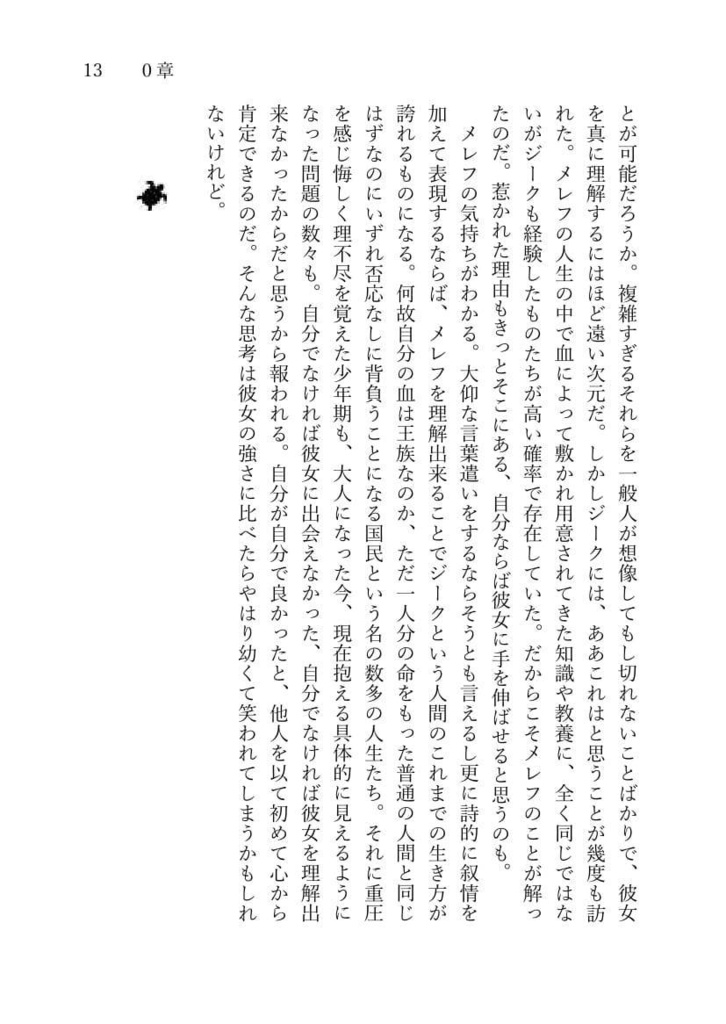 13　0章
とが可能だろうか。複雑すぎるそれらを一般人が想像してもし切れないことばかりで、彼女
を真に理解するにはほど遠い次元だ。しかしジークには、ああこれはと思うことが幾度も訪
れた。メレフの人生の中で血によって敷かれ用意されてきた知識や教養に、全く同じではな
いがジークも経験したものたちが高い確率で存在していた。だからこそメレフのことが解っ
たのだ。惹かれた理由もきっとそこにある、自分ならば彼女に手を伸ばせると思うのも。
　メレフの気持ちがわかる。大仰な言葉遣いをするならそうとも言えるし更に詩的に叙情を
加えて表現するならば、メレフを理解出来ることでジークという人間のこれまでの生き方が
誇れるものになる。何故自分の血は王族なのか、ただ一人分の命をもった普通の人間と同じ
はずなのにいずれ否応なしに背負うことになる国民という名の数多の人生たち。それに重圧
を感じ悔しく理不尽を覚えた少年期も、大人になった今、現在抱える具体的に見えるように
なった問題の数々も。自分でなければ彼女に出会えなかった、自分でなければ彼女を理解出
来なかったからだと思うから報われる。自分が自分で良かったと、他人を以て初めて心から
肯定できるのだ。そんな思考は彼女の強さに比べたらやはり幼くて笑われてしまうかもしれ
ないけれど。